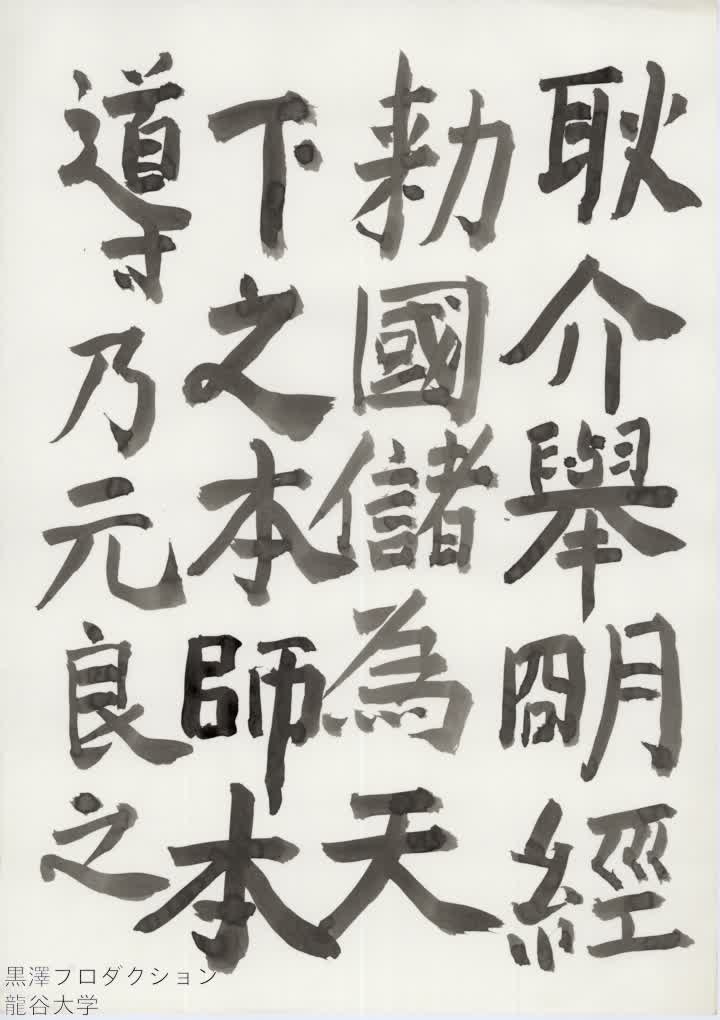 耿介舉朙經
勅國儲為天
下之本師本
導乃元良之
黒澤プロダクション
龍谷大学